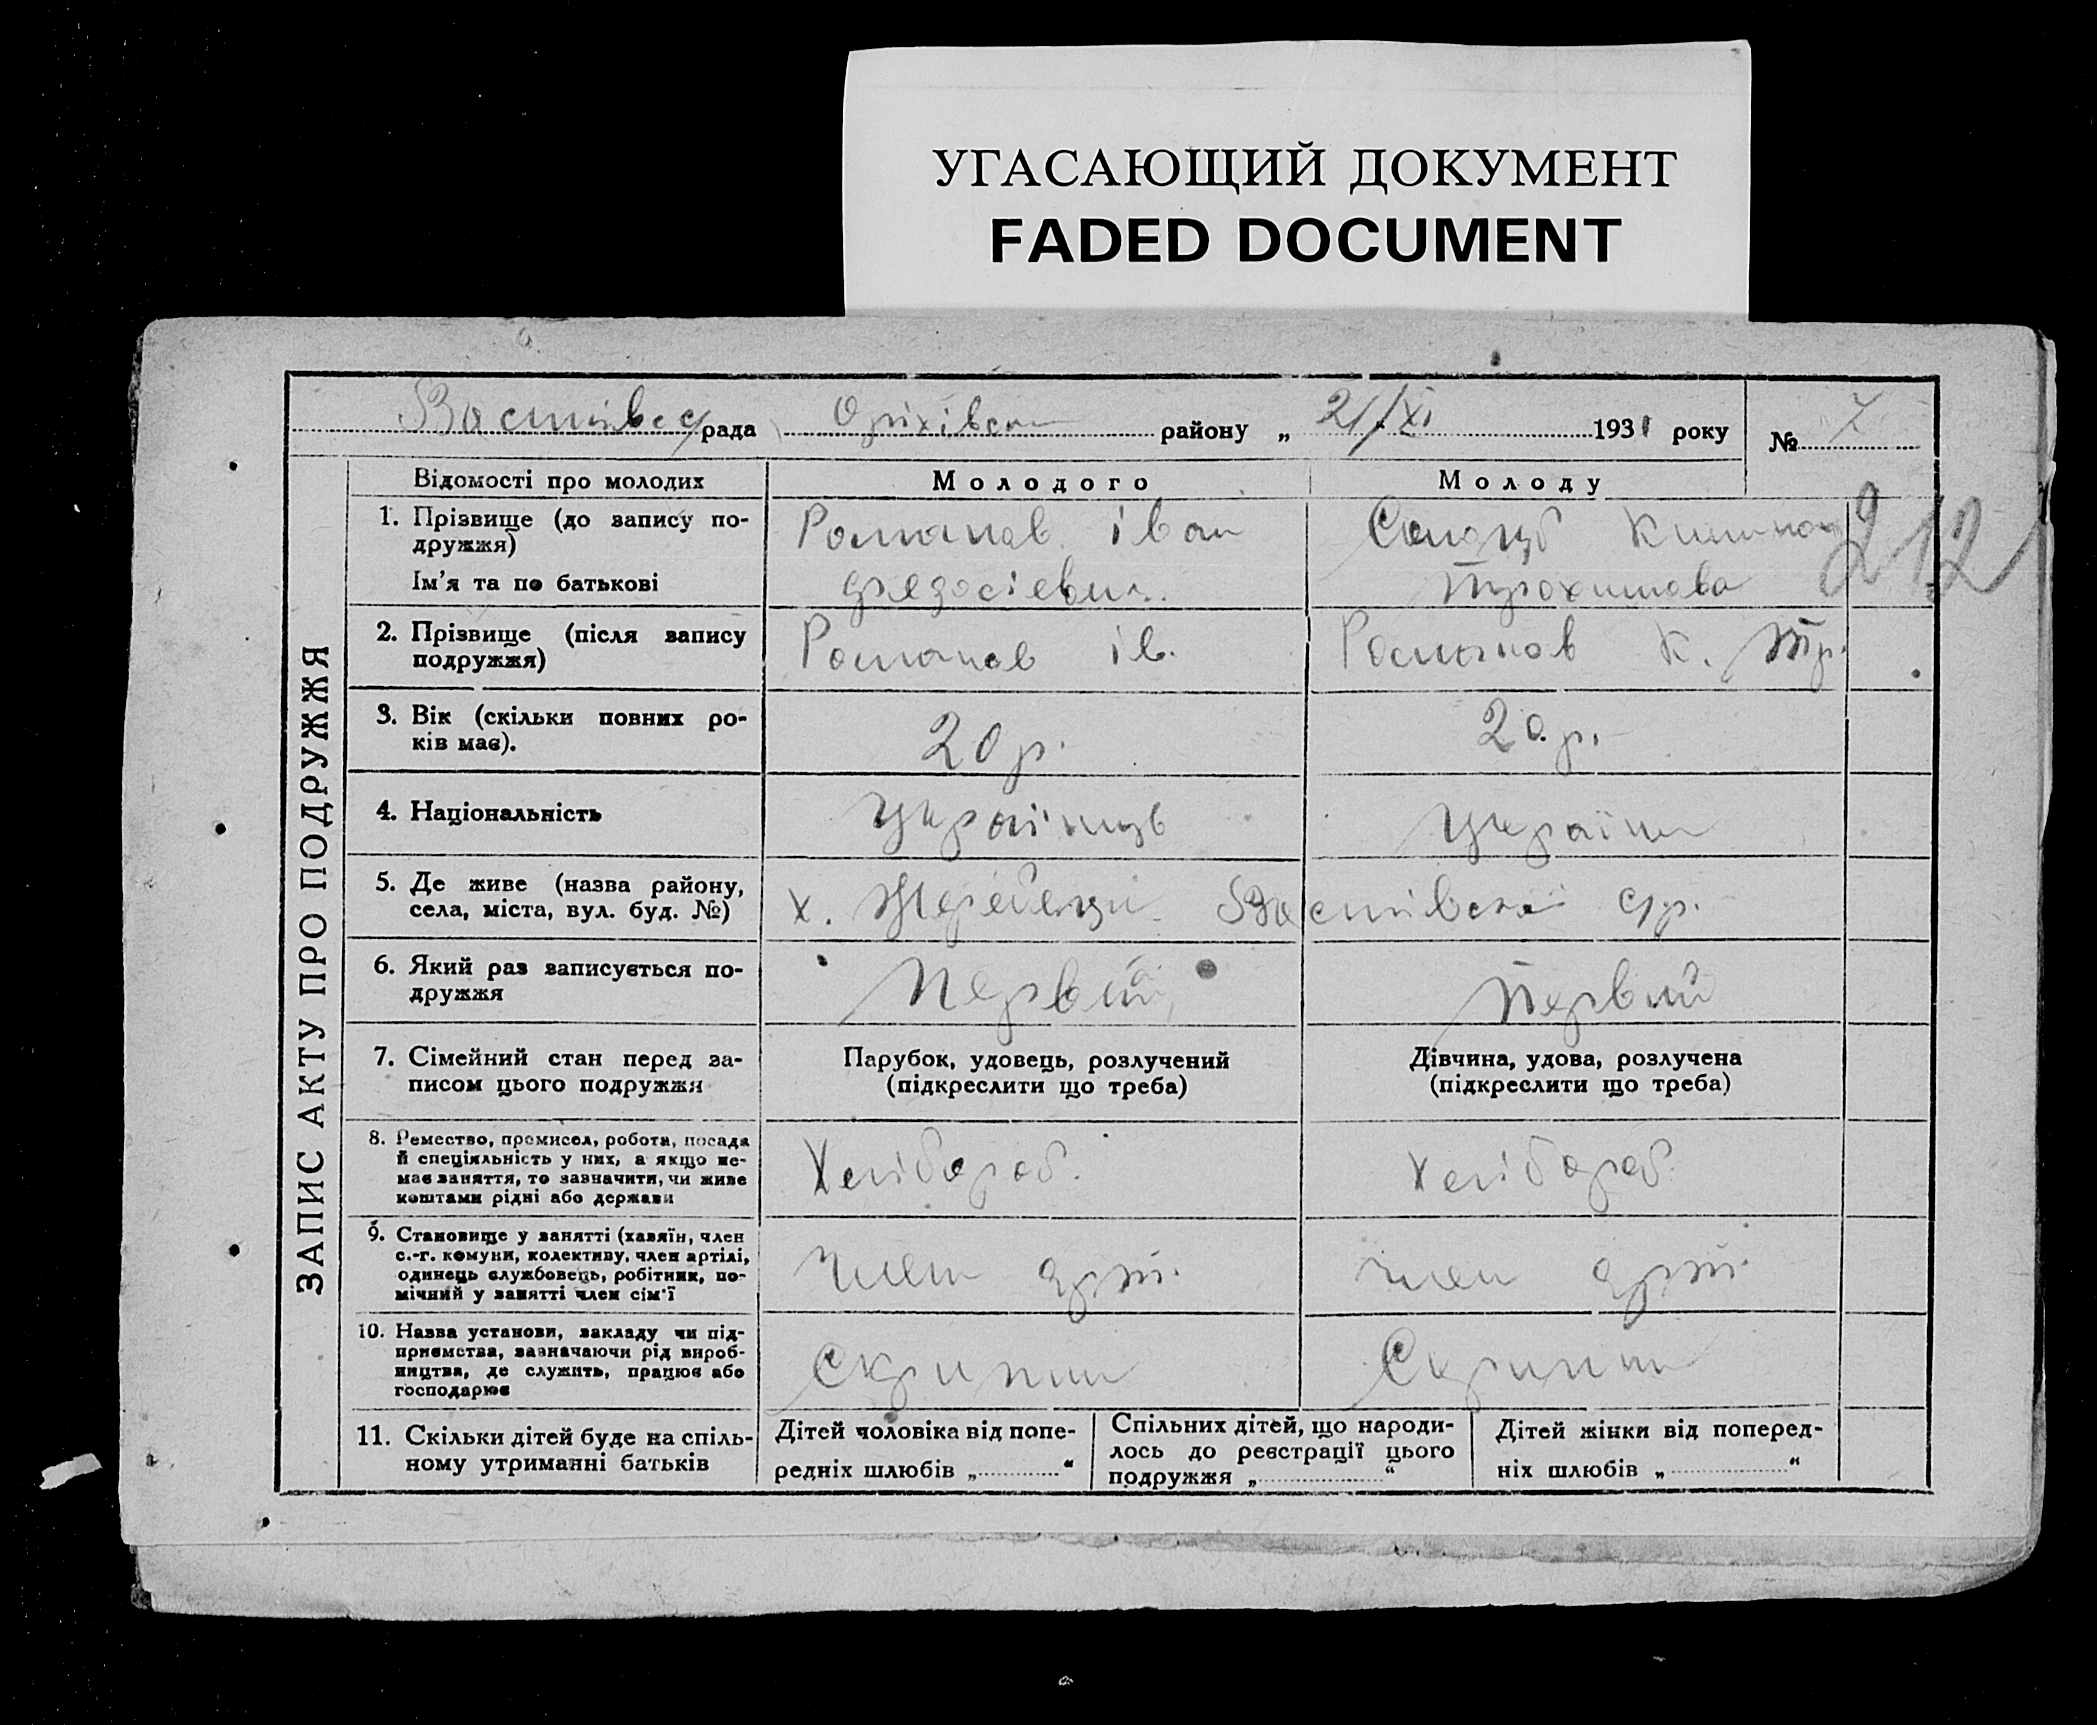 УГАСАЮЩИЙ ДОКУМЕНТ
FADED DOCUMENT
рада Оріхівськ району „ 21/XI 1931 року № 7
ЗАПИС АКТУ ПРО ПОДРУЖЖЯ
Відомості про молодих Молодого Молоду
212
1. Прізвище (до запису по-
дружжя)
Ім'я та по батькові
Романов Іван
Трохимова
2. Прізвище (після запису
подружжя)
Романов Ів.
Романов К. Тр.
3. Вік (скільки повних ро-
ків має).
20 р.
20 р.
4. Національність
Українць
Україн
5. Де живе (назва району,
села, міста, вул. буд. №)
х. Жеребець с/р.
6. Який раз записується по-
дружжя
Первий
Первий
7. Сімейний стан перед за-
писом цього подружжя
Парубок, удовець, розлучений
(підкреслити що треба)
Дівчина, удова, розлучена
(підкреслити що треба)
8. Ремество, промисел, робота, посада
й спеціяльність у них, а якщо не-
має заняття, то зазначити, чи живе
коштами рідні або держави
Хлібороб.
Хлібороб.
9. Становище у занятті (хазяїн, член
с.-г. комуни, колективу, член артілі,
одинець службовець, робітник, по-
мічний у занятті член сім'ї
Член арт.
член арт.
10. Назва установи, закладу чи під-
приємства, зазначаючи рід вироб-
ництва, де служить, працює або
господарює
Скрипн
Скрипн
11. Скільки дітей буде на спіль-
ному утриманні батьків
Дітей чоловіка від попе-
редніх шлюбів „ “
Спільних дітей, що народи-
лось до реєстрації цього
подружжя „ “
Дітей жінки від поперед-
ніх шлюбів „ “